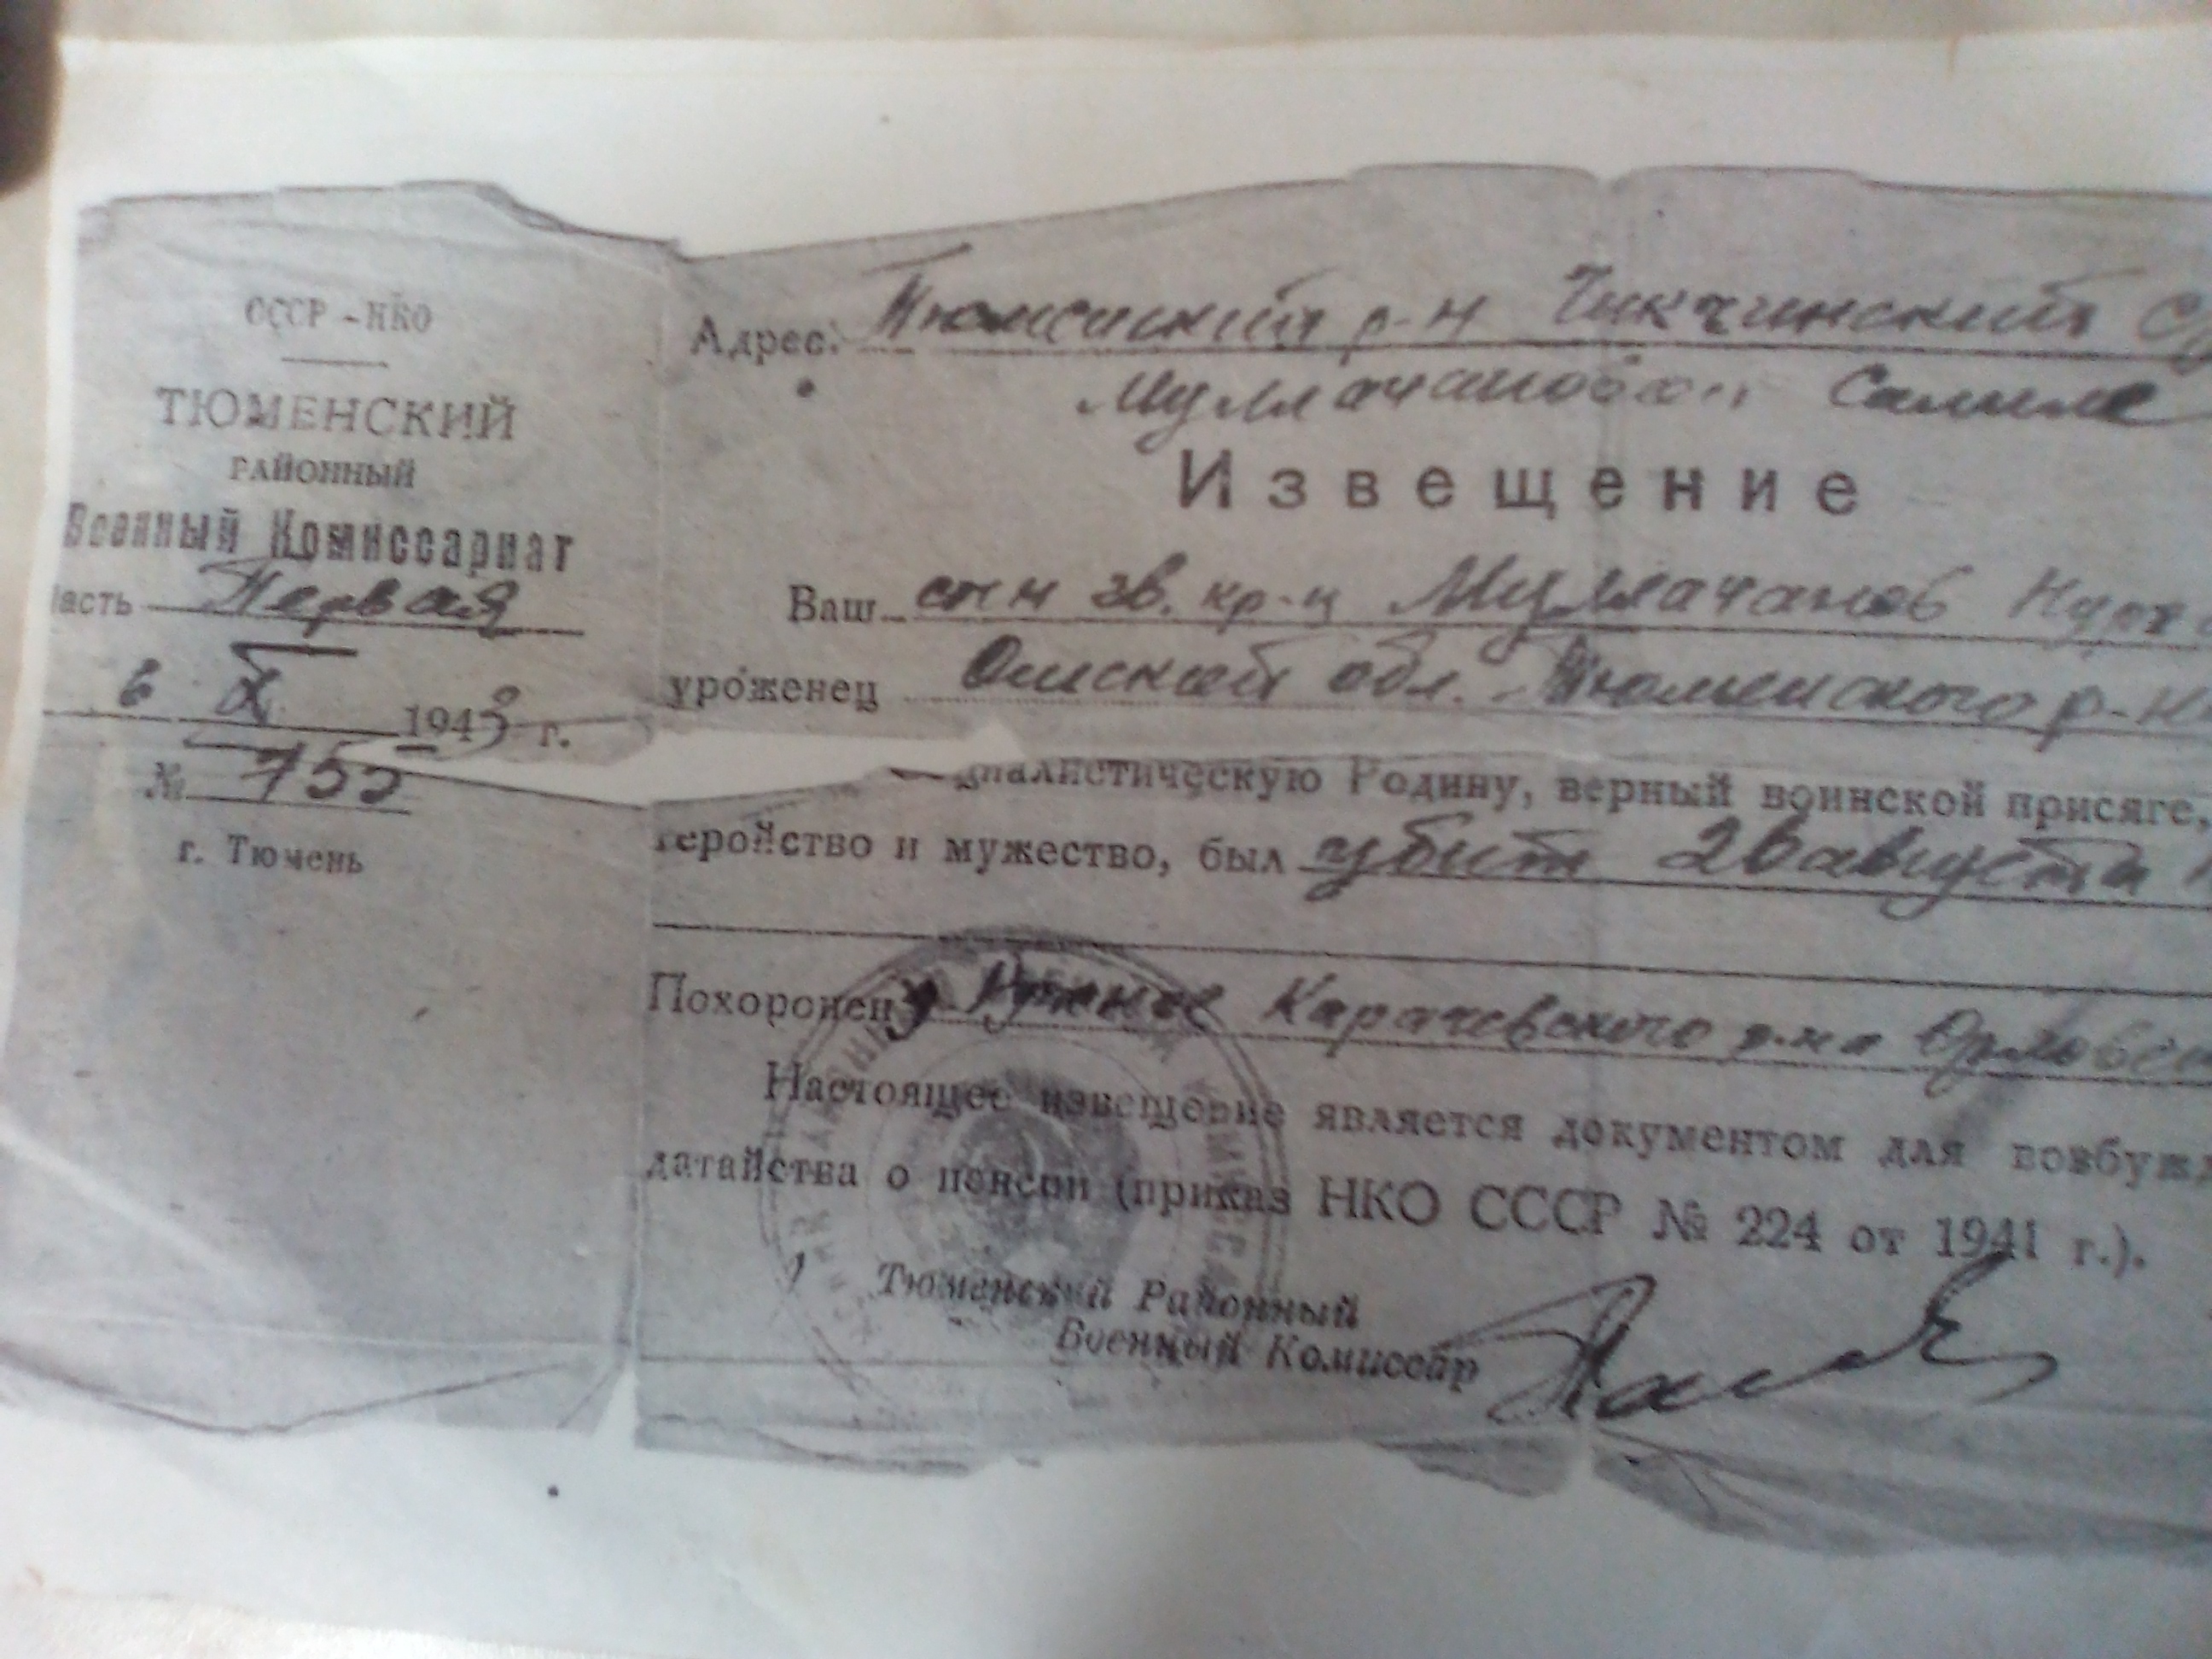 СССР - НКО
ТЮМЕНСКИЙ
РАЙОННЫЙ
Военный Комиссариат
асть Первая
6 X 1943 г.
№ 755
г. Тюмень
Адрес: Тюменский р-н Чикчинский
Муллачановой Салиме
Извещение
Ваш сын зв. кр-ц Муллачанов
уроженец Омской обл. Тюменского р-н
циалистическую Родину, верный воинской присяге,
геройство и мужество, был убит 26 августа
Похоронен у Карачевского р-на Орловск
Настоящее извещение является документом для возбужд
датайства о пенсии (приказ НКО СССР № 224 от 1941 г.).
Тюменский Районный
Военный Комиссар